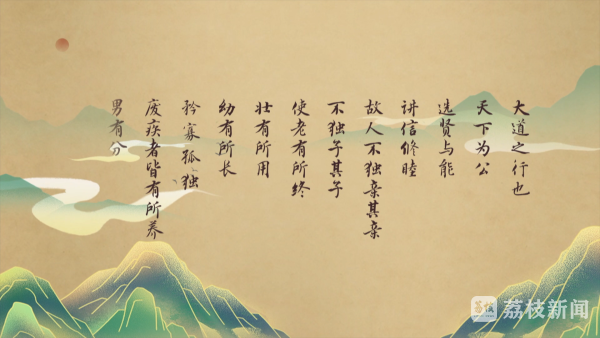 大道之行也
天下为公
选贤与能
讲信修睦
故人不独亲其亲
不独子其子
使老有所终
壮有所用
幼有所长
矜寡孤独
废疾者皆有所养
男有分
荔枝新闻